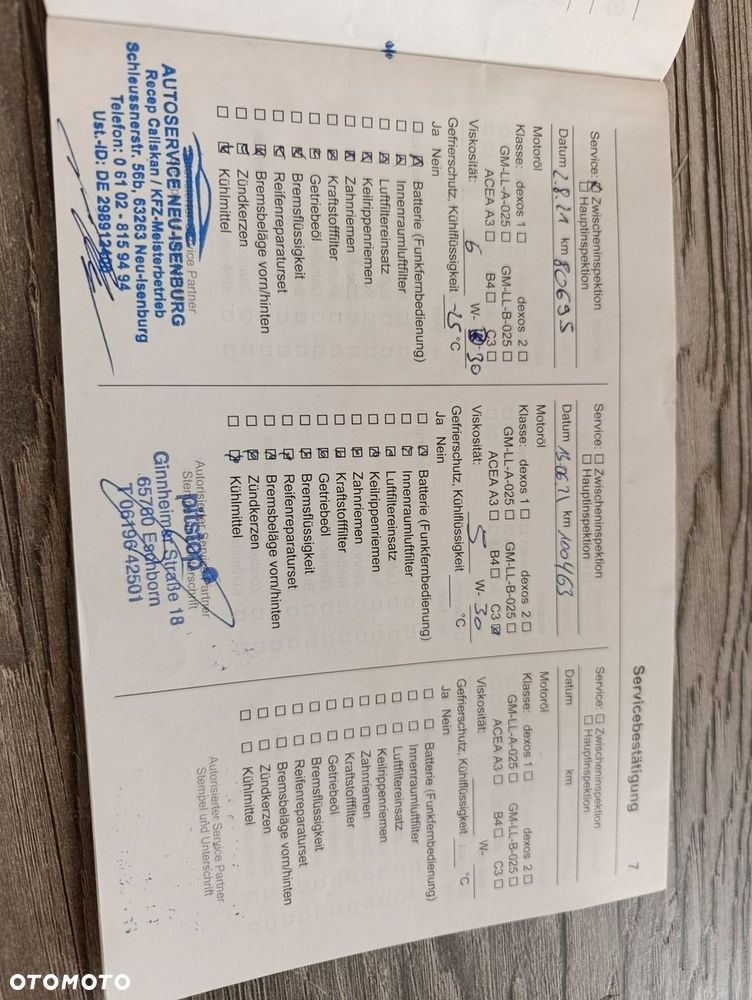 Servicebestätigung 7
Service: Zwischeninspektion
Hauptinspektion
Datum 2.8.21 km 80695
Motoröl
Klasse: dexos 1 dexos 2
GM-LL-A-025 GM-LL-B-025
ACEA A3 B4 C3
Viskosität: W- 30
Gefrierschutz, Kühlflüssigkeit -25 °C
Ja Nein
Batterie (Funkfernbedienung)
Innenraumluftfilter
Luftfiltereinsatz
Keilrippenriemen
Zahnriemen
Kraftstofffilter
Getriebeöl
Bremsflüssigkeit
Reifenreparaturset
Bremsbeläge vorn/hinten
Zündkerzen
Kühlmittel
Service Partner
AUTOSERVICE NEU-ISENBURG
Recep Caliskan / KFZ-Meisterbetrieb
Schleussnerstr. 56b, 63263 Neu-Isenburg
Telefon: 0 61 02 - 815 94 94
Ust.-ID: DE
Service: Zwischeninspektion
Hauptinspektion
Datum km 100463
Motoröl
Klasse: dexos 1 dexos 2
GM-LL-A-025 GM-LL-B-025
ACEA A3 B4 C3
Viskosität: 5 W- 30
Gefrierschutz, Kühlflüssigkeit °C
Ja Nein
Batterie (Funkfernbedienung)
Innenraumluftfilter
Luftfiltereinsatz
Keilrippenriemen
Zahnriemen
Kraftstofffilter
Getriebeöl
Bremsflüssigkeit
Reifenreparaturset
Bremsbeläge vorn/hinten
Zündkerzen
Kühlmittel
Autorisierter Service Partner
pitstop
Ginnheimer Straße 18
65760 Eschborn
T 06196/42501
Service: Zwischeninspektion
Hauptinspektion
Datum km
Motoröl
Klasse: dexos 1 dexos 2
GM-LL-A-025 GM-LL-B-025
ACEA A3 B4 C3
Viskosität: W-
Gefrierschutz, Kühlflüssigkeit °C
Ja Nein
Batterie (Funkfernbedienung)
Innenraumluftfilter
Luftfiltereinsatz
Keilrippenriemen
Zahnriemen
Kraftstofffilter
Getriebeöl
Bremsflüssigkeit
Reifenreparaturset
Bremsbeläge vorn/hinten
Zündkerzen
Kühlmittel
Autorisierter Service Partner
Stempel und Unterschrift
OTOMOTO